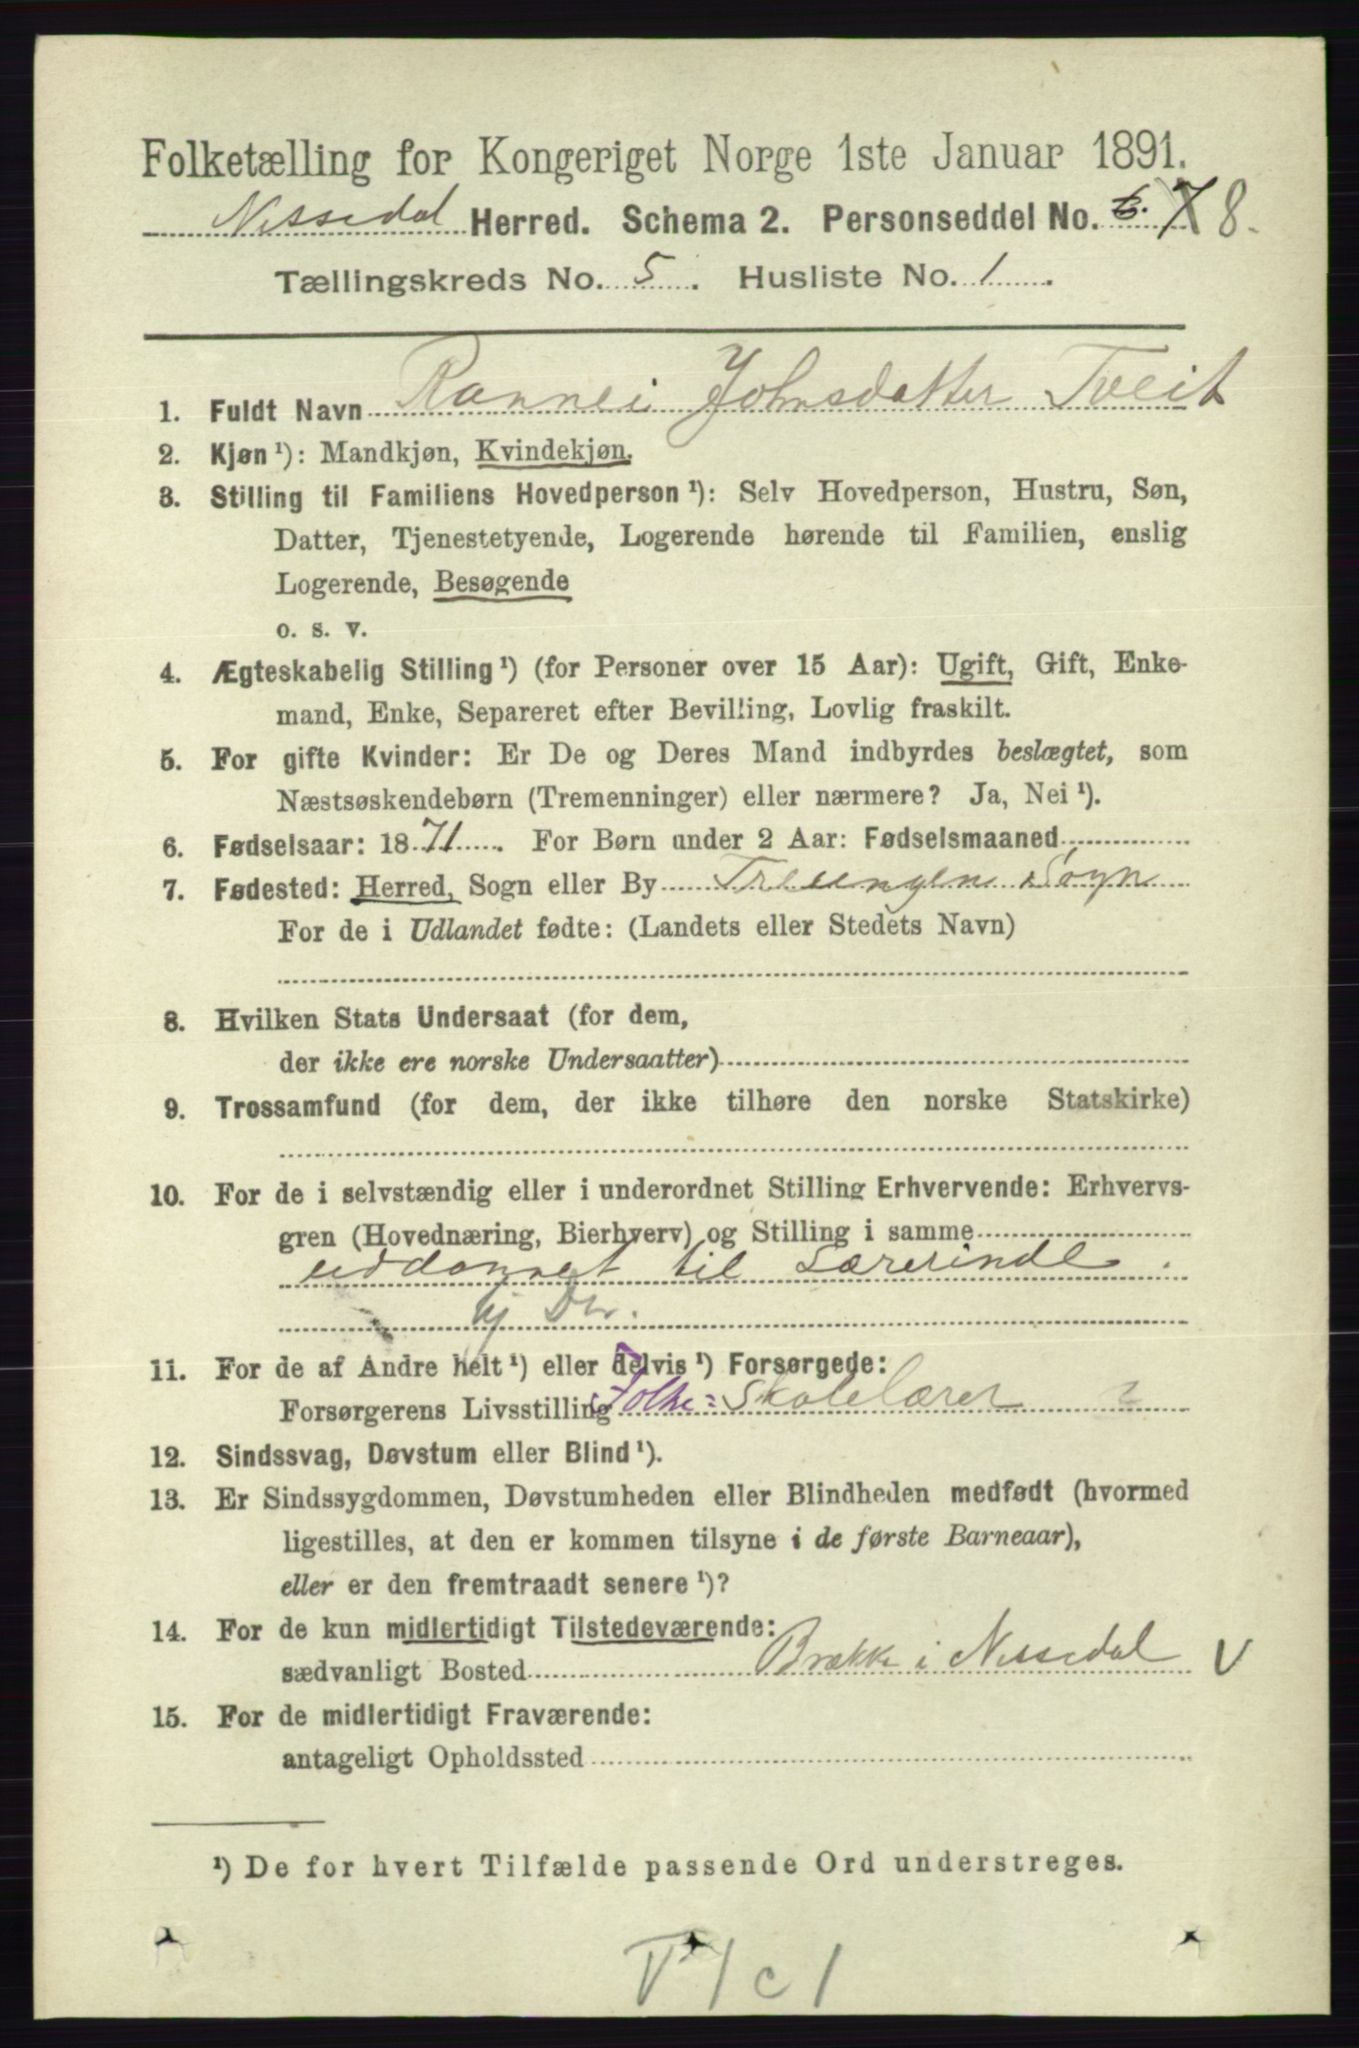 Folketælling for Kongeriget Norge 1ste Januar 1891.
Nissedal Herred. Schema 2. Personseddel No. 6. 7 8.
Tællingskreds No. 5. Husliste No. 1.
1. Fuldt Navn Rannei Johnsdatter Tveit
2. Kjøn ¹): Mandkjøn, Kvindekjøn.
3. Stilling til Familiens Hovedperson ¹): Selv Hovedperson, Hustru, Søn,
Datter, Tjenestetyende, Logerende hørende til Familien, enslig
Logerende, Besøgende
o. s. v.
4. Ægteskabelig Stilling ¹) (for Personer over 15 Aar): Ugift, Gift, Enke-
mand, Enke, Separeret efter Bevilling, Lovlig fraskilt.
5. For gifte Kvinder: Er De og Deres Mand indbyrdes beslægtet, som
Næstsøskendebørn (Tremenninger) eller nærmere? Ja, Nei ¹).
6. Fødselsaar: 1871. For Børn under 2 Aar: Fødselsmaaned
7. Fødested: Herred, Sogn eller By Treungen Sogn
For de i Udlandet fødte: (Landets eller Stedets Navn)
8. Hvilken Stats Undersaat (for dem,
der ikke ere norske Undersaatter)
9. Trossamfund (for dem, der ikke tilhøre den norske Statskirke)
10. For de i selvstændig eller i underordnet Stilling Erhvervende: Erhvervs-
gren (Hovednæring, Bierhverv) og Stilling i samme
uddannet til Lærerinde.
11. For de af Andre helt ¹) eller delvis ¹) Forsørgede:
Forsørgerens Livsstilling Folke=Skolelærer ?
12. Sindssvag, Døvstum eller Blind ¹).
13. Er Sindssygdommen, Døvstumheden eller Blindheden medfødt (hvormed
ligestilles, at den er kommen tilsyne i de første Barneaar),
eller er den fremtraadt senere ¹)?
14. For de kun midlertidigt Tilstedeværende:
sædvanligt Bosted Brække i Nissedal V
15. For de midlertidigt Fraværende:
antageligt Opholdssted
¹) De for hvert Tilfælde passende Ord understreges.